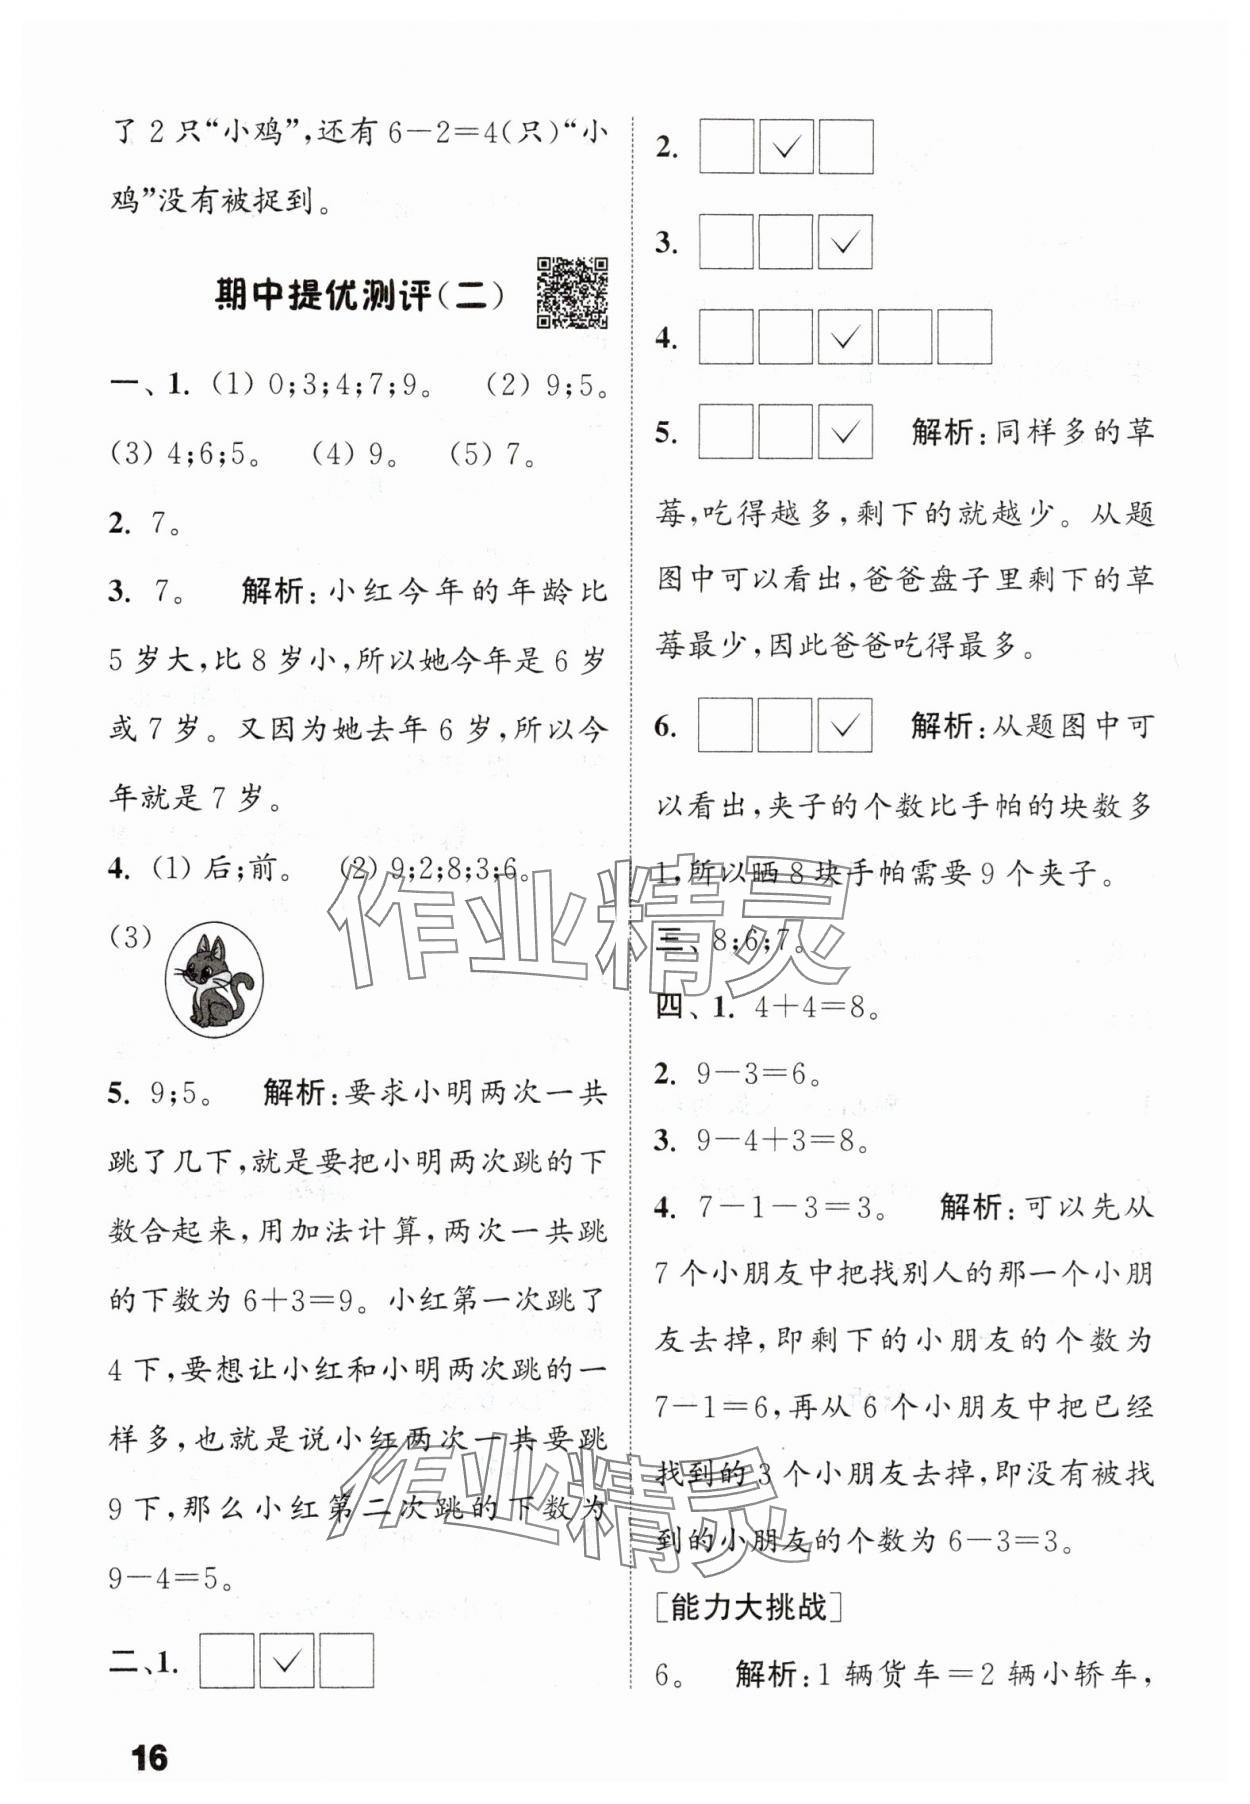 了2只“小鸡”,还有6－2＝4(只)“小
鸡”没有被捉到。
期中提优测评(二)
一、1. (1) 0;3;4;7;9。 (2) 9;5。
(3) 4;6;5。 (4) 9。 (5) 7。
2. 7。
3. 7。 解析:小红今年的年龄比
5岁大,比8岁小,所以她今年是6岁
或7岁。又因为她去年6岁,所以今
年就是7岁。
4. (1) 后;前。 (2) 9;2;8;3;6。
(3)
5. 9;5。 解析:要求小明两次一共
跳了几下,就是要把小明两次跳的下
数合起来,用加法计算,两次一共跳
的下数为6＋3＝9。小红第一次跳了
4下,要想让小红和小明两次跳的一
样多,也就是说小红两次一共要跳
9下,那么小红第二次跳的下数为
9－4＝5。
二、1. ✓
16
2. ✓
3. ✓
4. ✓
5. ✓ 解析:同样多的草
莓,吃得越多,剩下的就越少。从题
图中可以看出,爸爸盘子里剩下的草
莓最少,因此爸爸吃得最多。
6. ✓ 解析:从题图中可
以看出,夹子的个数比手帕的块数多
1,所以晒8块手帕需要9个夹子。
三、8;6;7。
四、1. 4＋4＝8。
2. 9－3＝6。
3. 9－4＋3＝8。
4. 7－1－3＝3。 解析:可以先从
7个小朋友中把找别人的那一个小朋
友去掉,即剩下的小朋友的个数为
7－1＝6,再从6个小朋友中把已经
找到的3个小朋友去掉,即没有被找
到的小朋友的个数为6－3＝3。
[能力大挑战]
6。 解析:1辆货车＝2辆小轿车,
作业精灵
作业精灵